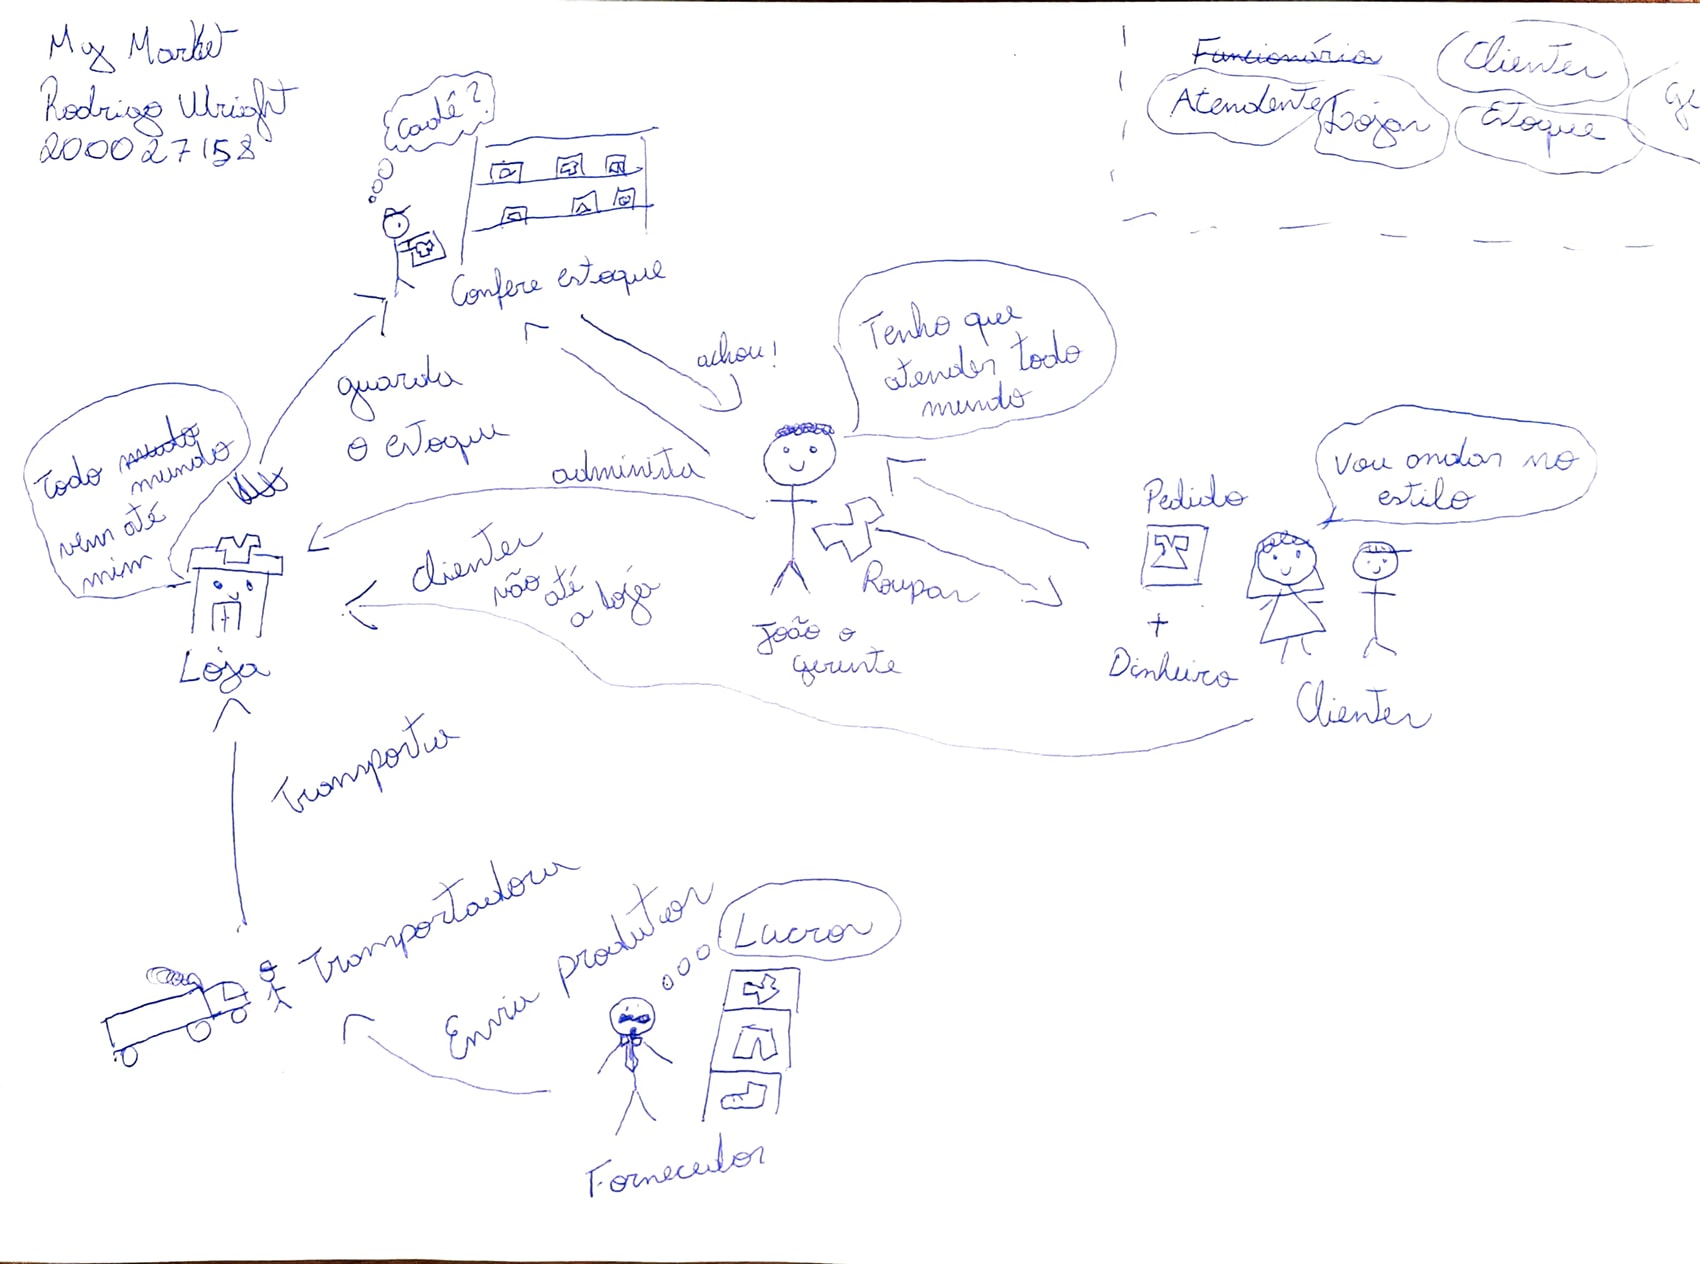 My Market
Rodrigo Wright
200027158
Funcionários
Clientes
Atendente
Lojas
Estoque
Ge
Cadê?
Confere estoque
achou!
Tenho que
atender todo
mundo
guarda
o estoque
Todo mundo
vem até
mim
administra
Clientes
vão até
a loja
Loja
João o
gerente
Roupas
Pedido
+
Dinheiro
Vou andar no
estilo
Clientes
Transporta
Transportadora
Envia produtos
Lucros
Fornecedor